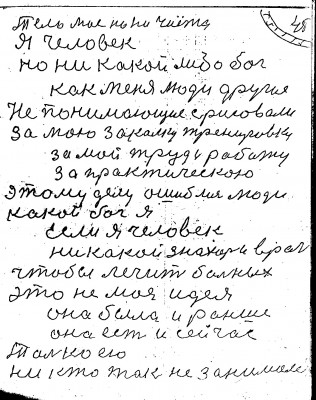 45
Тело мае на ни чиста
Я человек
но ни какой либо бог
как меня люди другие
Не понимающие рисовали
За мою закалку тренировку
за мой труд работу
за практическою
этому делу ошиблис люди
какой бог я
если я человек
ни какой знахар и врач
чтобы лечит балных
это не моя идея
она была и ранше
она ест и сейчас
Толко ею
ни кто так не занимале